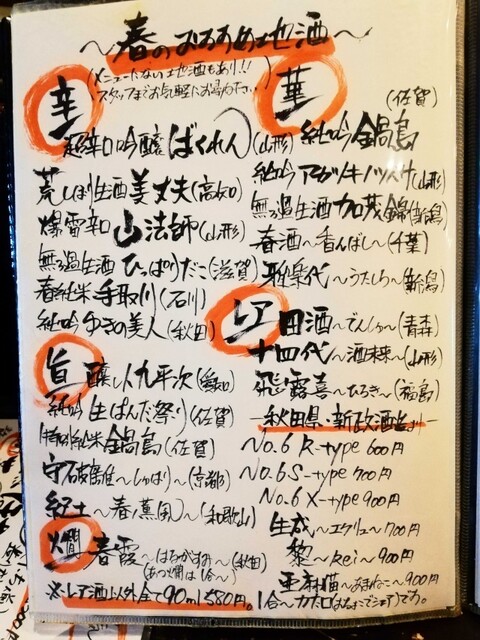 〜春のおすすめ地酒〜
(メニューにない地酒もあり!!
スタッフまでお気軽にお尋ね下さい)
辛
超辛口吟醸ばくれん(山形)
荒しぼり生酒美丈夫(高知)
爆雷辛口山法師(山形)
無ろ過生酒ひっぱりだこ(滋賀)
春純米手取川(石川)
純吟ゆきの美人(秋田)
旨
醸し人九平次(愛知)
純吟生ぱんだ祭り(佐賀)
特別純米鍋島(佐賀)
守破離〜しゅはり〜(京都)
紀土〜春ノ薫風〜(和歌山)
燗
春霞〜はるがすみ〜(秋田)
(あつ燗は1合〜)
華
純吟鍋島(佐賀)
純吟アカツキノツバサ(山形)
無ろ過生酒加茂錦(新潟)
春酒〜香んばし〜(千葉)
雅楽代〜うたしろ〜(新潟)
レア
田酒〜でんしゅ〜(青森)
十四代〜酒未来〜(山形)
飛露喜〜ひろき〜(福島)
―秋田県・新政酒造―
No.6 R-type 600円
No.6 S-type 700円
No.6 X-type 900円
生成〜エクリュ〜700円
黎〜Kei〜900円
亜麻猫〜あまねこ〜900円
※レア酒以外全て90ml 580円。1合〜カタ口(おちょこでシェア)です。